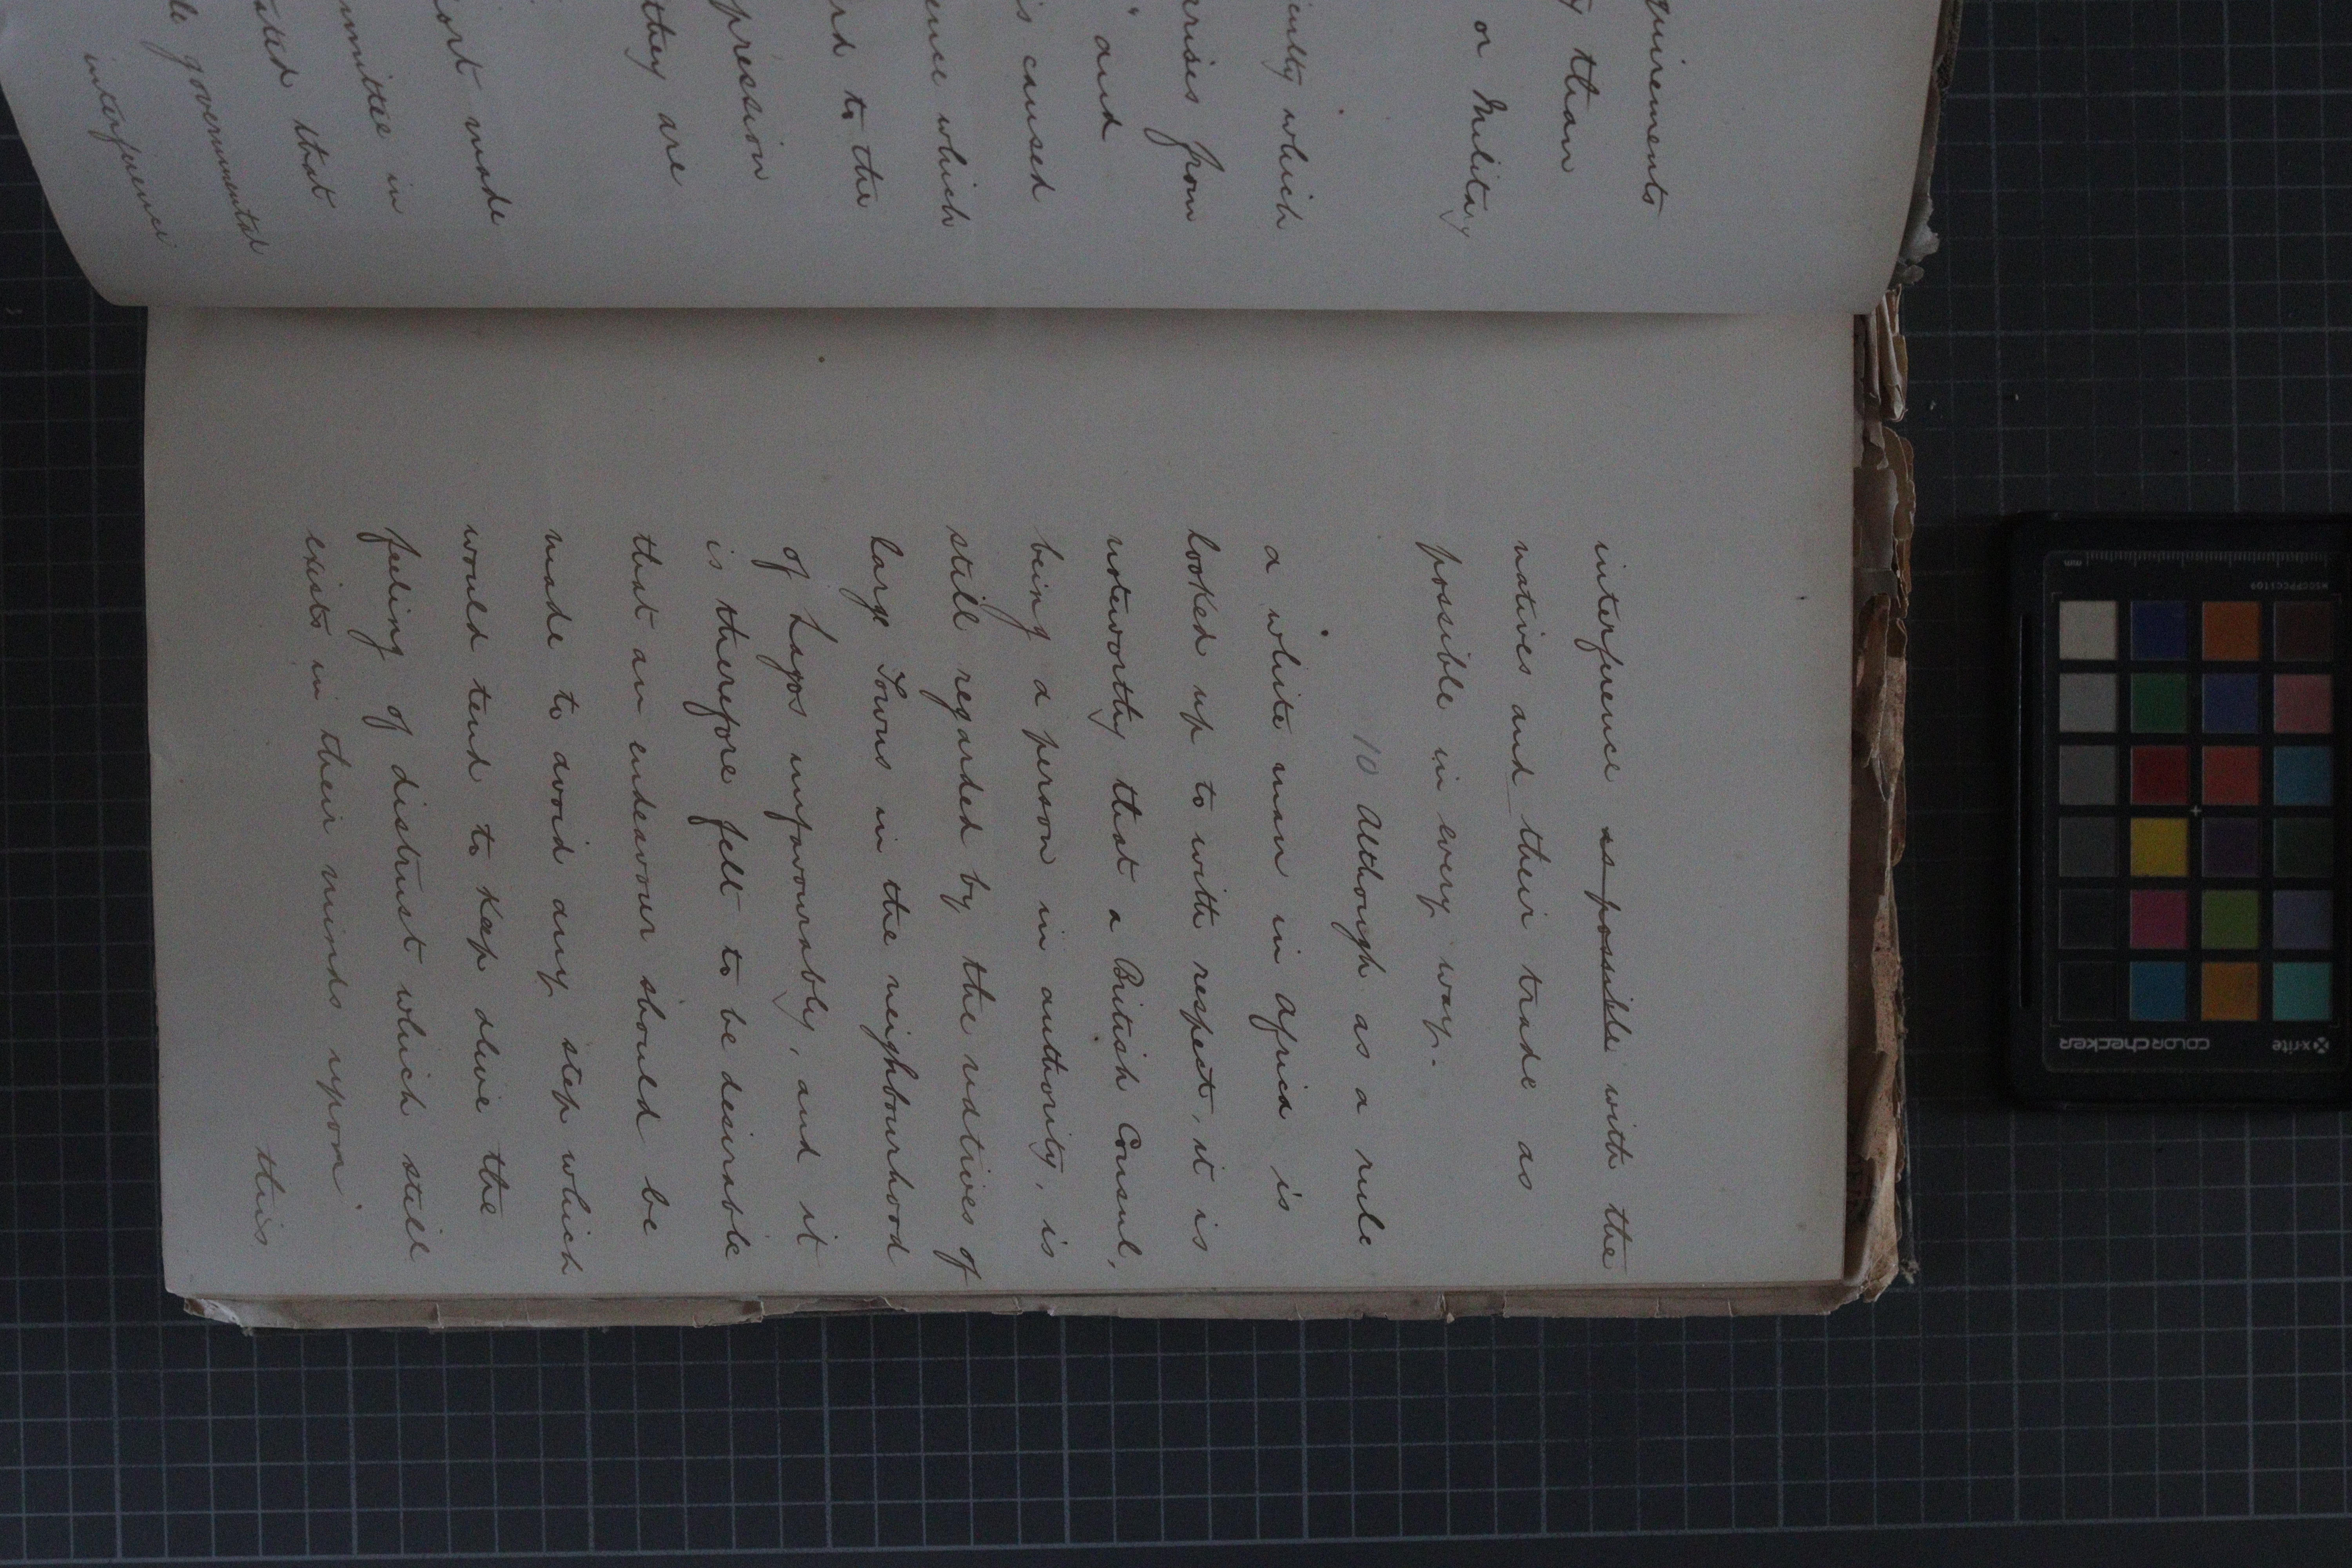 quirements
than
or Military
culty which
arises from
" and
is caused
ence which
rd to the
pression
they are
ort made
mmittee in
ated that
le governmental
interference
interference as possible with the
natives and their trade as
possible in every way.
10 Although as a rule
a white man in Africa is
looked up to with respect, it is
noteworthy that a British Consul,
being a person in authority, is
still regarded by the natives of
large Towns in the neighbourhood
of Lagos unfavourably, and it
is therefore felt to be desirable
that an endeavour should be
made to avoid any step which
would tend to keep alive the
feeling of distrust which still
exists in their minds upon
this
mm
MSCCPPCC1109
x-rite
colorchecker